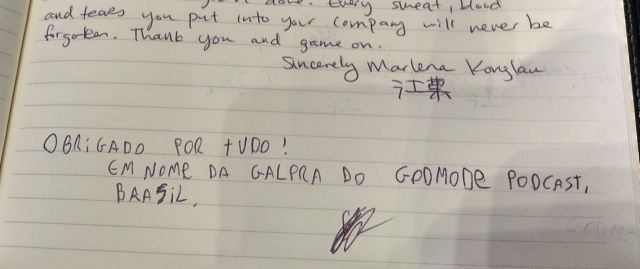 done. Every sweat, blood
and tears you put into your company will never be
forgotten. Thank you and game on.
Sincerely Marlena
OBRiGADO POR tUDO!
EM NOME DA GALPRA DO GODMODe PODCAST,
BRASiL.